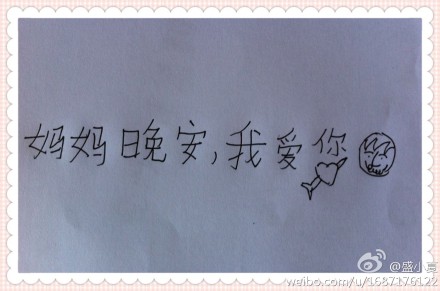 妈妈晚安,我爱你
@盛小夏
weibo.com/u/1687176122